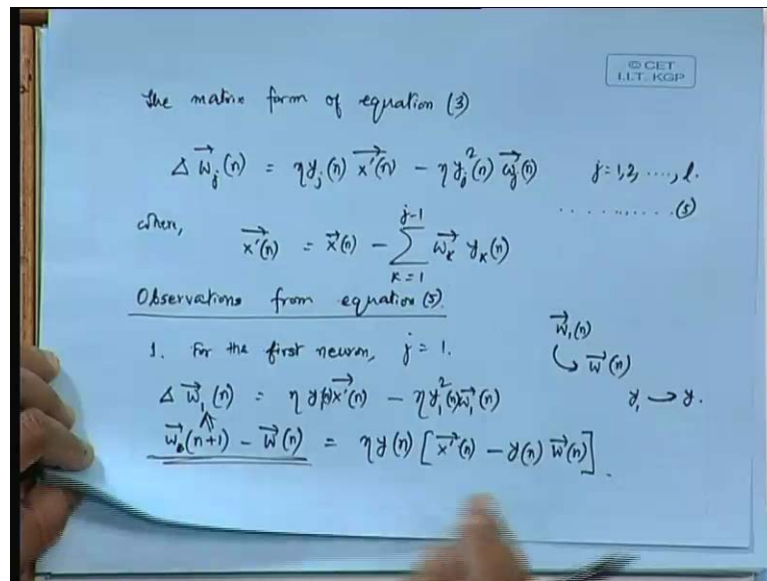 © CET
I.I.T. KGP
The matrix form of equation (3)
Δ w⃗_j(n) = η y_j(n) x⃗'(n) − η y_j²(n) w⃗_j(n) j = 1, 2, ...., l.
.......... (5)
where,
x⃗'(n) = x⃗(n) − Σ_{k=1}^{j-1} w⃗_k y_k(n)
Observations from equation (5).
1. For the first neuron, j = 1.
w⃗₁(n)
↳ w⃗(n)
y₁ → y.
Δ w⃗₁(n) = η y₁(n) x⃗'(n) − η y₁²(n) w⃗₁(n)
w⃗(n+1) − w⃗(n) = η y(n) [x⃗'(n) − y(n) w⃗(n)].